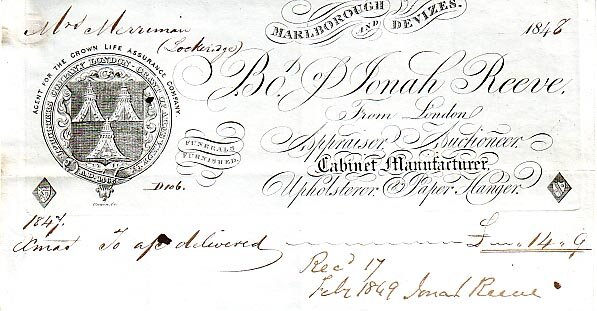 MARLBOROUGH AND DEVIZES.
Mrs Merriman 1848
(Lockeridge)
Bot. of Jonah Reeve,
From London
Appraiser, Auctioneer,
Cabinet Manufacturer,
Upholsterer & Paper Hanger.
AGENT FOR THE CROWN LIFE ASSURANCE COMPANY.
FUNERALS
FURNISHED.
D106.
1847.
Xmas To a/c delivered £ " 14 " 9
Recd 17
Feby 1849 Jonah Reeve